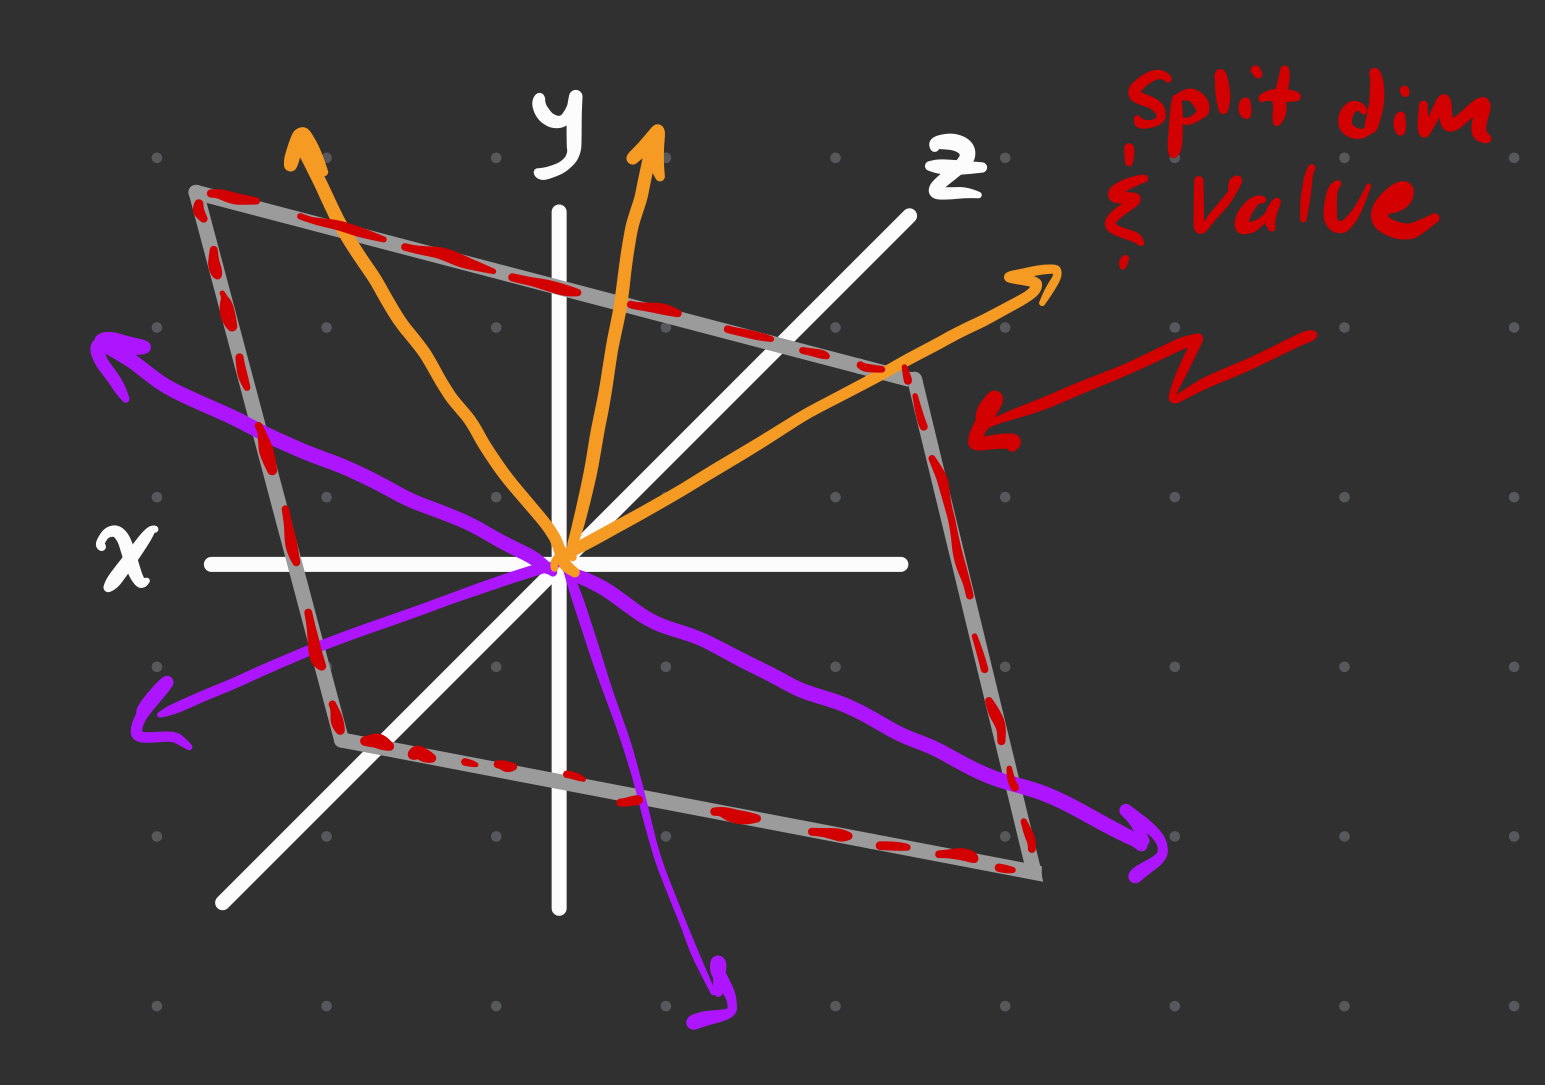 y
z
split dim
& value
x